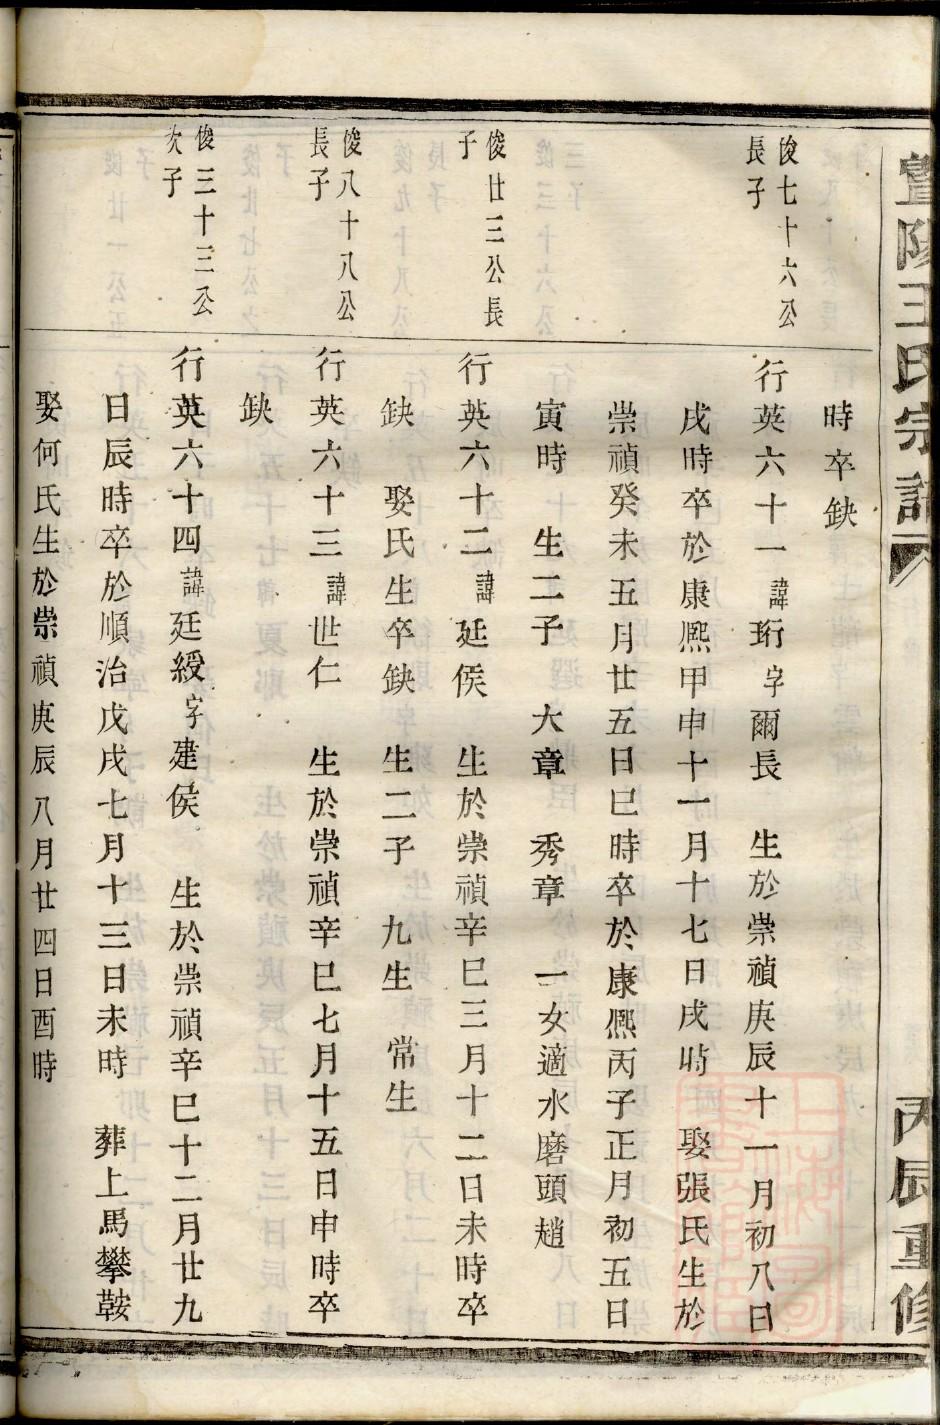 暨陽王氏宗譜
丙辰重修
時卒缺
俊七十六公
長子
行英六十一諱珩字爾長 生於崇禎庚辰十一月初八日
戌時卒於康熙甲申十一月十七日戌時 娶張氏生於
崇禎癸未五月廿五日巳時卒於康熙丙子正月初五日
寅時 生二子 大章 秀章 一女適水磨頭趙
俊廿三公長
子
行英六十二諱廷侯 生於崇禎辛巳三月十二日未時卒
缺 娶氏生卒缺 生二子 九生 常生
俊八十八公
長子
行英六十三諱世仁 生於崇禎辛巳七月十五日申時卒
缺
俊三十三公
次子
行英六十四諱廷綬字建侯 生於崇禎辛巳十二月廿九
日辰時卒於順治戊戌七月十三日未時 葬上馬攀鞍
娶何氏生於崇禎庚辰八月廿四日酉時